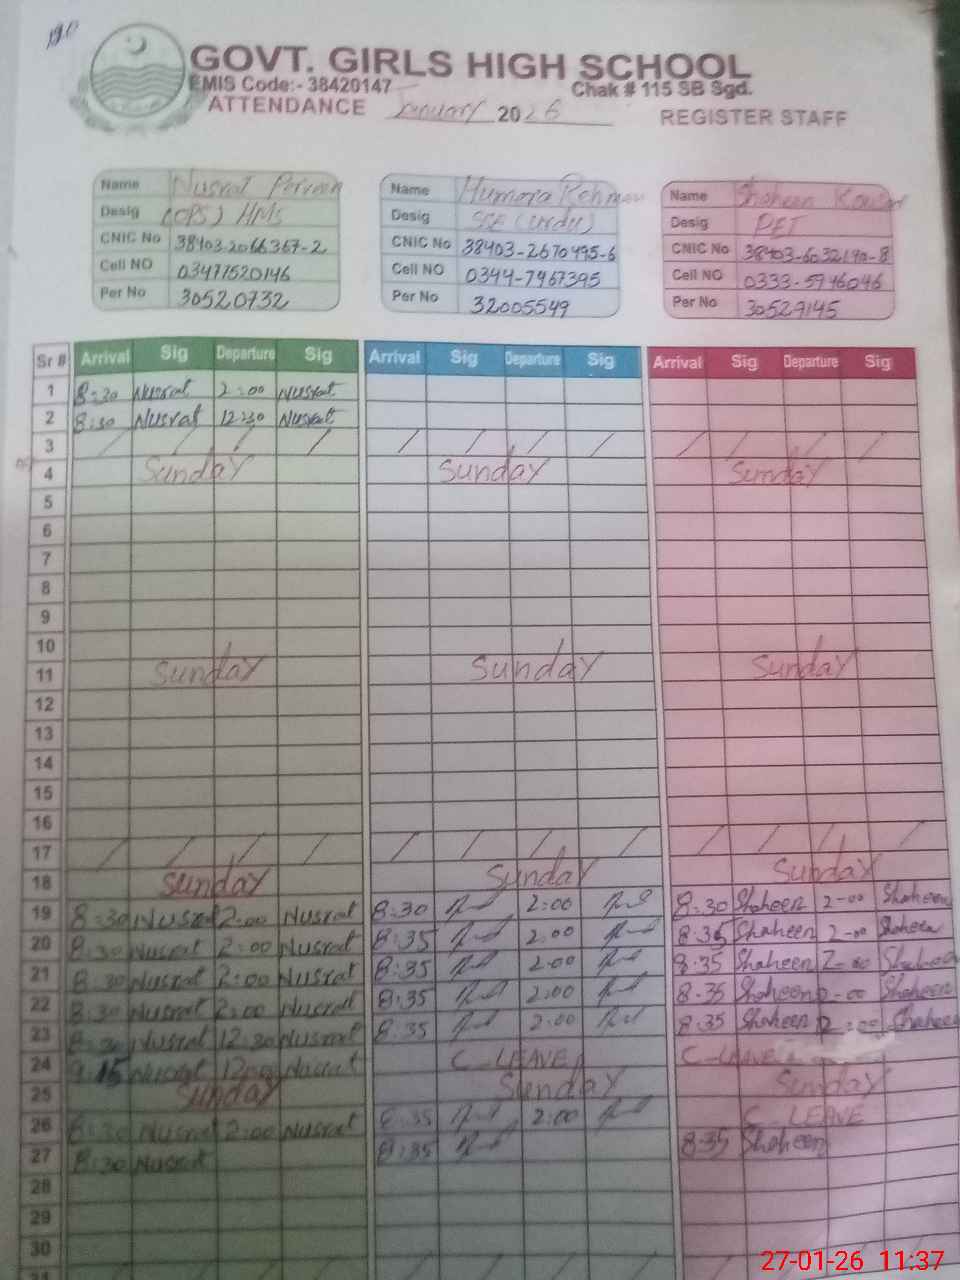 GOVT. GIRLS HIGH SCHOOL
EMIS Code:- 38420147 Chak # 115 SB Sgd.
ATTENDANCE January 2026 REGISTER STAFF
Name Nusrat Perveen
Desig (OPS) HMs
CNIC No 38403-2066367-2
Cell NO 03477520146
Per No 30520732
Name Humera Rehman
Desig SSE (urdu)
CNIC No 38403-2670495-6
Cell NO 0344-7467395
Per No 32005549
Name Shaheen Kousar
Desig PET
CNIC No
Cell NO 0333-5946046
Per No 30529145
Sr # Arrival Sig Departure Sig Arrival Sig Departure Sig Arrival Sig Departure Sig
1 8:30 Nusrat 2:00 Nusrat
2 8:30 Nusrat 12:30 Nusrat
3
4 Sunday Sunday Sunday
5
6
7
8
9
10
11 Sunday Sunday Sunday
12
13
14
15
16
17
18 Sunday Sunday Sunday
19 8:30 Nusrat 2:00 Nusrat 8:30 2:00 8:30 Shaheen 2-00 Shaheen
20 8:30 Nusrat 2:00 Nusrat 8:35 2:00 8:35 Shaheen 2-00 Shaheen
21 8:30 Nusrat 2:00 Nusrat 8:35 2:00 8:35 Shaheen 2-00 Shaheen
22 8:30 Nusrat 2:00 Nusrat 8:35 2:00 8:35 Shaheen 2-00 Shaheen
23 8:30 Nusrat 12:30 Nusrat 8:35 2:00 8:35 Shaheen 2:00 Shaheen
24 9:15 Nusrat Nusrat C-LEAVE C-LEAVE
25 Sunday Sunday Sunday
26 8:30 Nusrat 2:00 Nusrat 8:35 2:00 C LEAVE
27 8:30 Nusrat 8:35 8:35 Shaheen
28
29
30
31
27-01-26 11:37